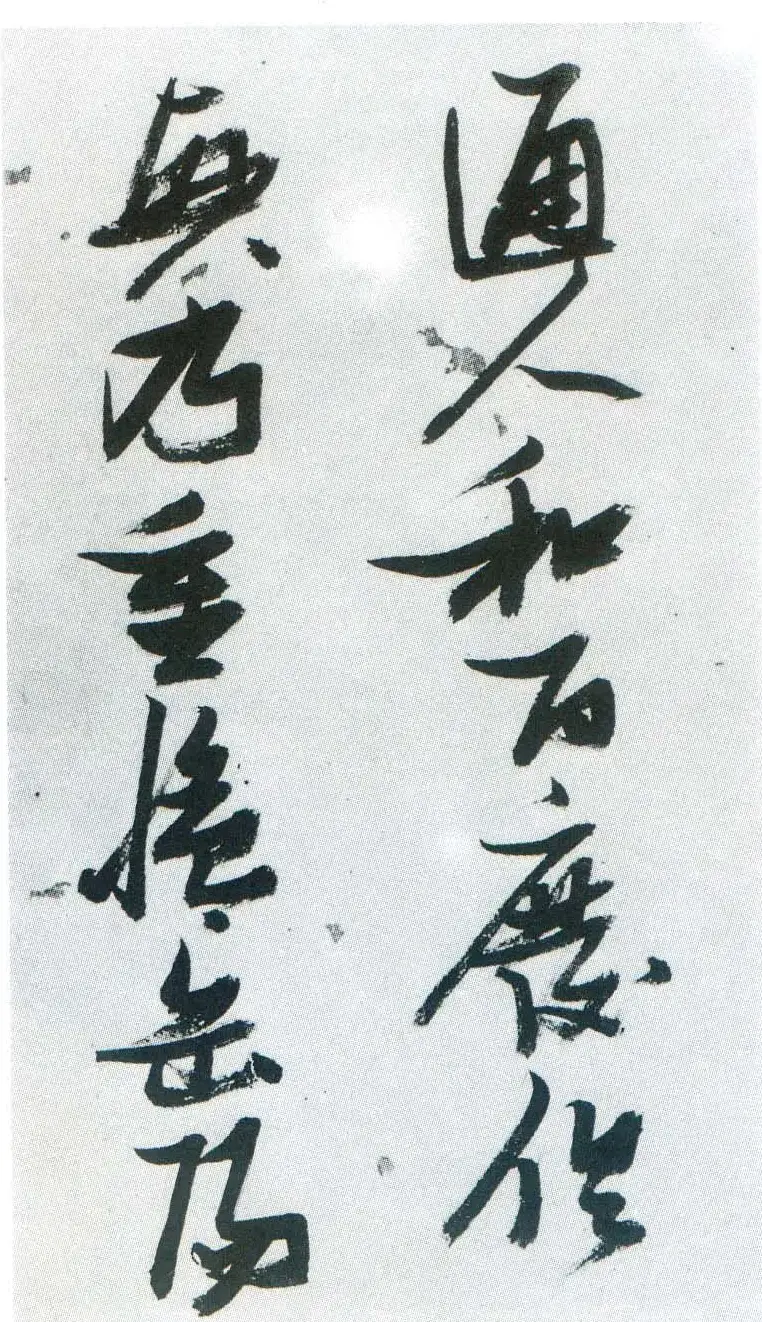 通人和百廢俱
興乃重修岳陽